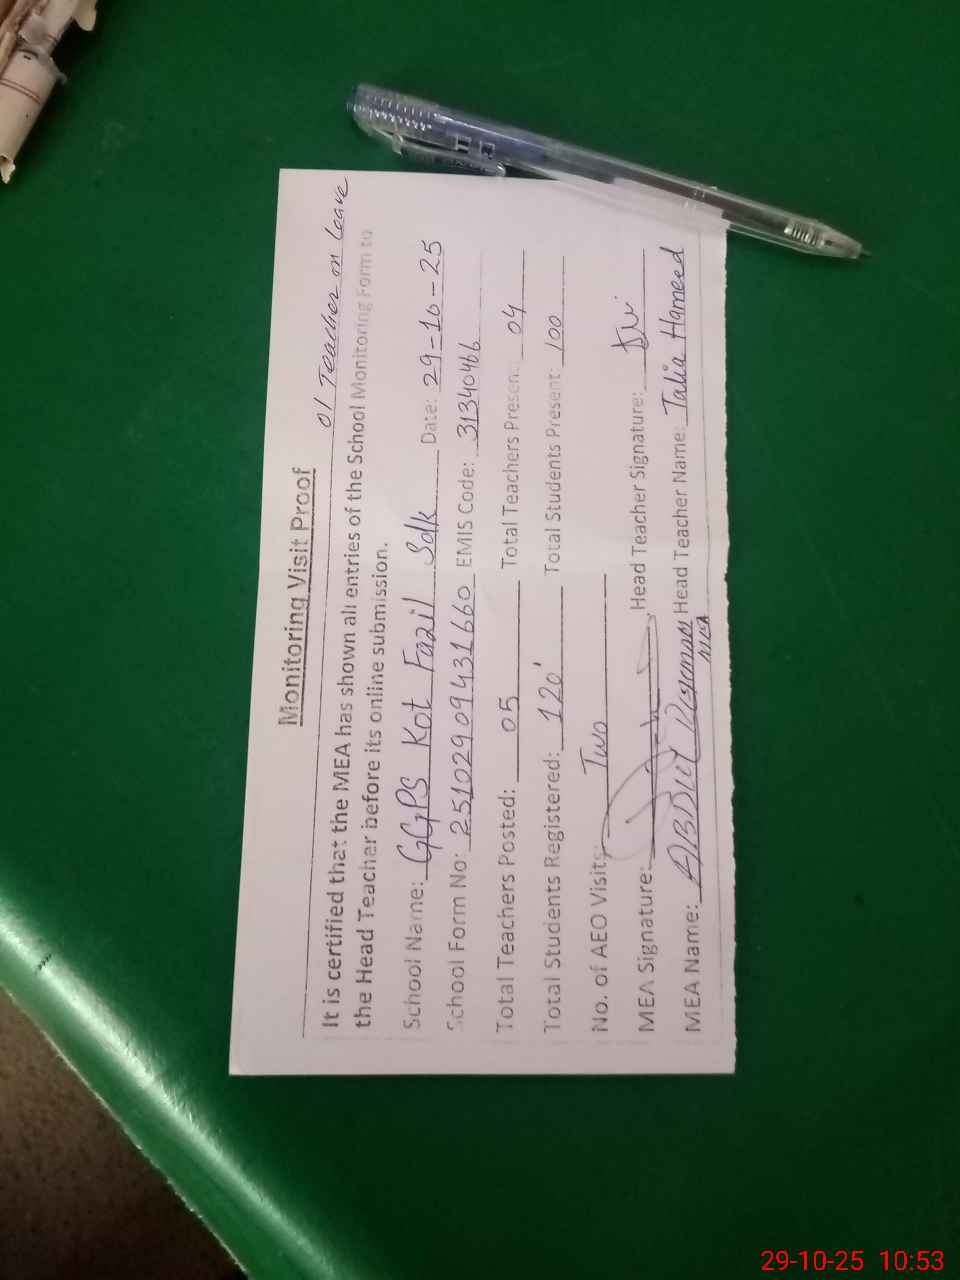 Monitoring Visit Proof
01 Teacher on leave
It is certified that the MEA has shown all entries of the School Monitoring Form to
the Head Teacher before its online submission.
School Name: GGPS Kot Fazil Sdk Date: 29-10-25
School Form No: 25102909431660 EMIS Code: 31340466
Total Teachers Posted: 05 Total Teachers Present: 04
Total Students Registered: 120 Total Students Present: 100
No. of AEO Visits: Two
MEA Signature: Head Teacher Signature:
MEA Name: ABDUL Head Teacher Name: Talia Hameed
MEA
29-10-25 10:53